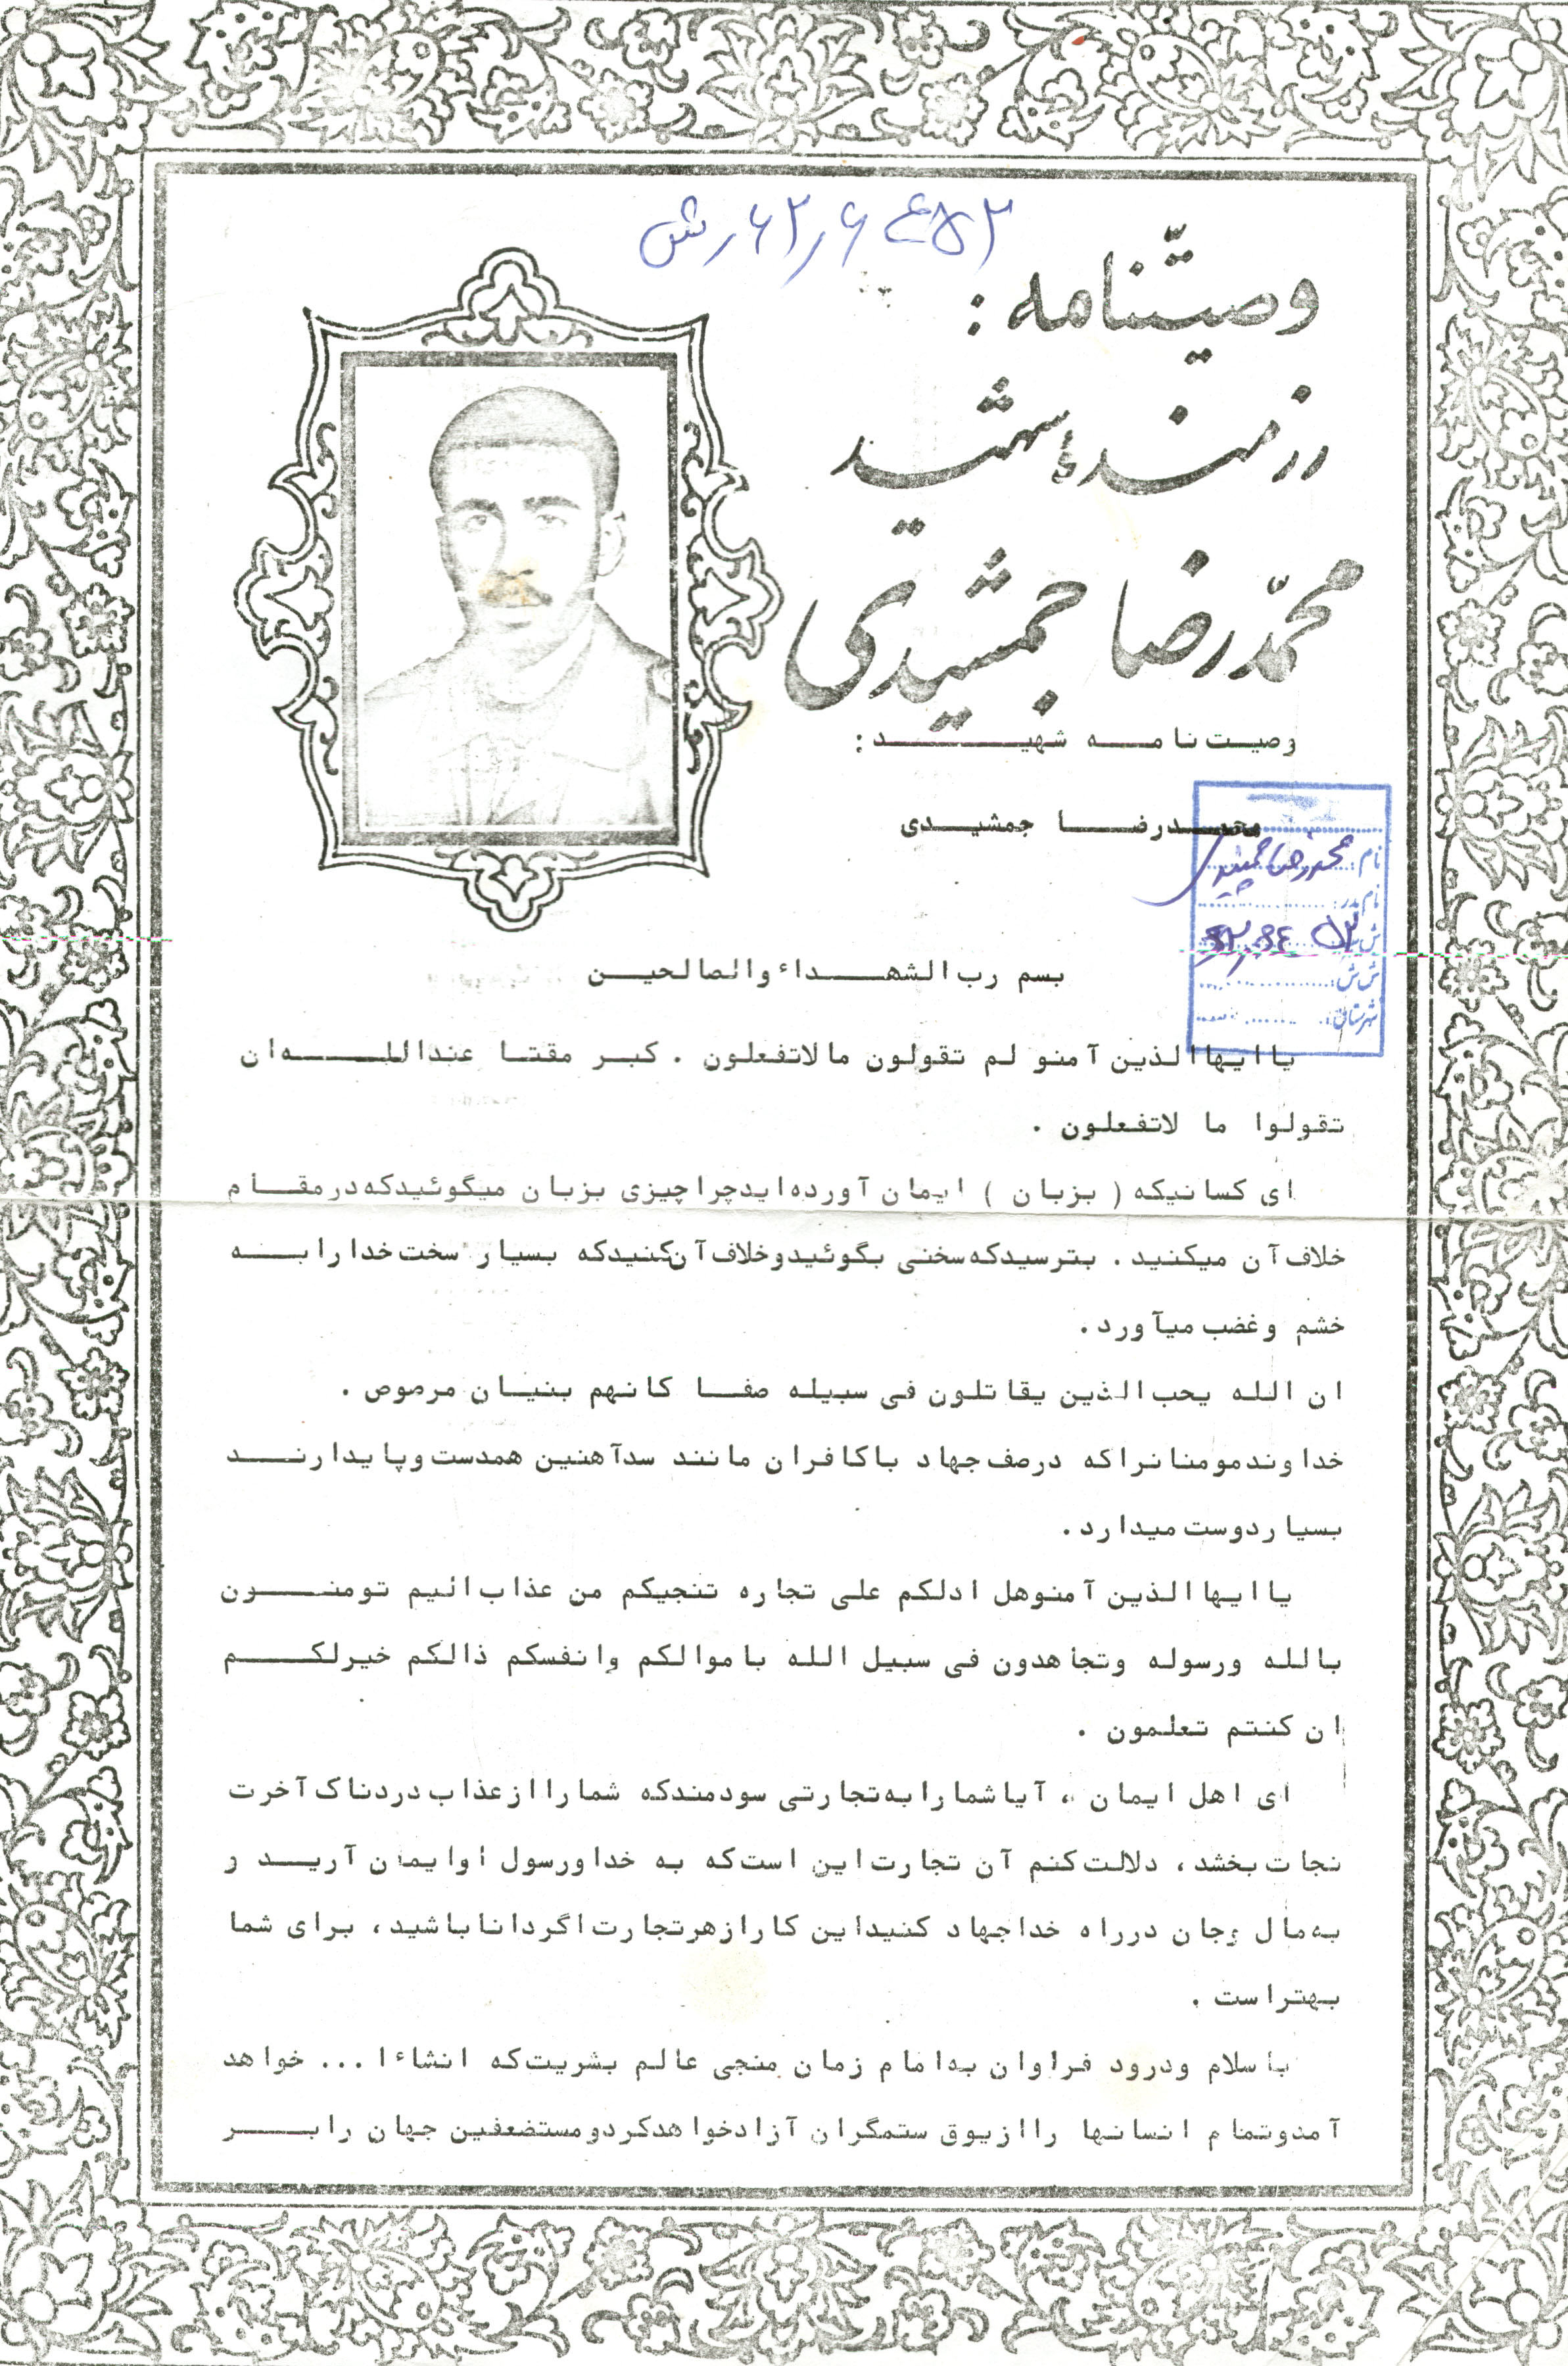 وصیّتنامه:
رزمنده شهید
محمّدرضا جمشیدی
وصیت نامه شهید:
محمدرضا جمشیدی
نام: محمدرضا جمشیدی
نام پدر:
ش ش:
شهرستان:
بسم رب الشهداء والصالحین
یا ایها الذین آمنو لم تقولون مالاتفعلون . کبر مقتا عندالله ان
تقولوا ما لاتفعلون .
ای کسانیکه ( بزبان ) ایمان آورده اید چرا چیزی بزبان میگوئید که در مقام
خلاف آن میکنید . بترسید که سخنی بگوئید و خلاف آن کنید که بسیار سخت خدا را به
خشم و غضب میآورد.
ان الله یحب الذین یقاتلون فی سبیله صفا کانهم بنیان مرموص .
خداوند مومنانرا که در صف جهاد با کافران مانند سد آهنین همدست و پایدارند
بسیار دوست میدارد.
یا ایها الذین آمنو هل ادلکم علی تجاره تنجیکم من عذاب الیم تومنون
بالله ورسوله وتجاهدون فی سبیل الله باموالکم وانفسکم ذالکم خیرلکم
ان کنتم تعلمون .
ای اهل ایمان ، آیا شما را به تجارتی سودمند که شما را از عذاب دردناک آخرت
نجات بخشد، دلالت کنم آن تجارت این است که به خدا و رسول او ایمان آرید و
به مال وجان در راه خدا جهاد کنید این کار از هر تجارت اگر دانا باشید، برای شما
بهتر است .
با سلام ودرود فراوان به امام زمان منجی عالم بشریت که انشاءا... خواهد
آمد و تمام انسانها را از یوق ستمگران آزاد خواهد کرد و مستضعفین جهان را بر